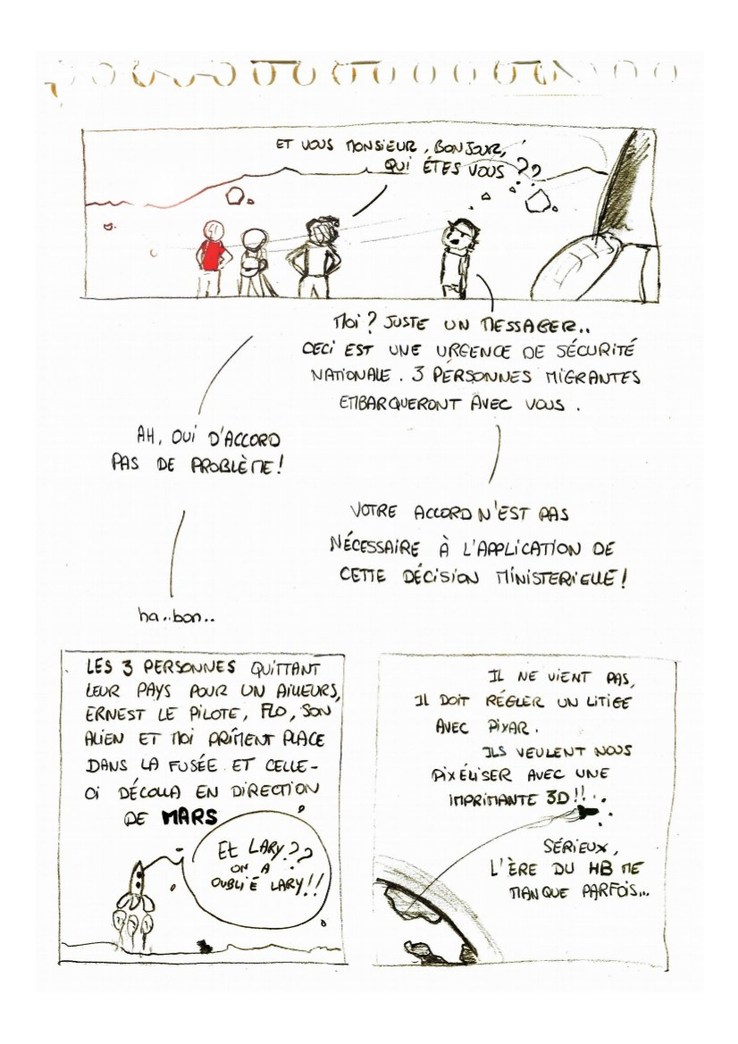 ET VOUS MONSIEUR, BONJOUR,
QUI ÊTES VOUS ??
MOI ? JUSTE UN MESSAGER..
CECI EST UNE URGENCE DE SÉCURITÉ
NATIONALE. 3 PERSONNES MIGRANTES
EMBARQUERONT AVEC VOUS.
AH, OUI D'ACCORD
PAS DE PROBLÈME !
VOTRE ACCORD N'EST PAS
NÉCESSAIRE À L'APPLICATION DE
CETTE DÉCISION MINISTERIELLE !
ha..bon..
LES 3 PERSONNES QUITTANT
LEUR PAYS POUR UN AILLEURS,
ERNEST LE PILOTE, FLO, SON
ALIEN ET MOI PRÎMENT PLACE
DANS LA FUSÉE ET CELLE-
CI DÉCOLLA EN DIRECTION
DE MARS
ET LARY ??
ON A
OUBLIÉ LARY !!
IL NE VIENT PAS,
IL DOIT RÉGLER UN LITIGE
AVEC PIXAR.
ILS VEULENT NOUS
PIXÉLISER AVEC UNE
IMPRIMANTE 3D !!
SÉRIEUX,
L'ÈRE DU HB ME
MANQUE PARFOIS...